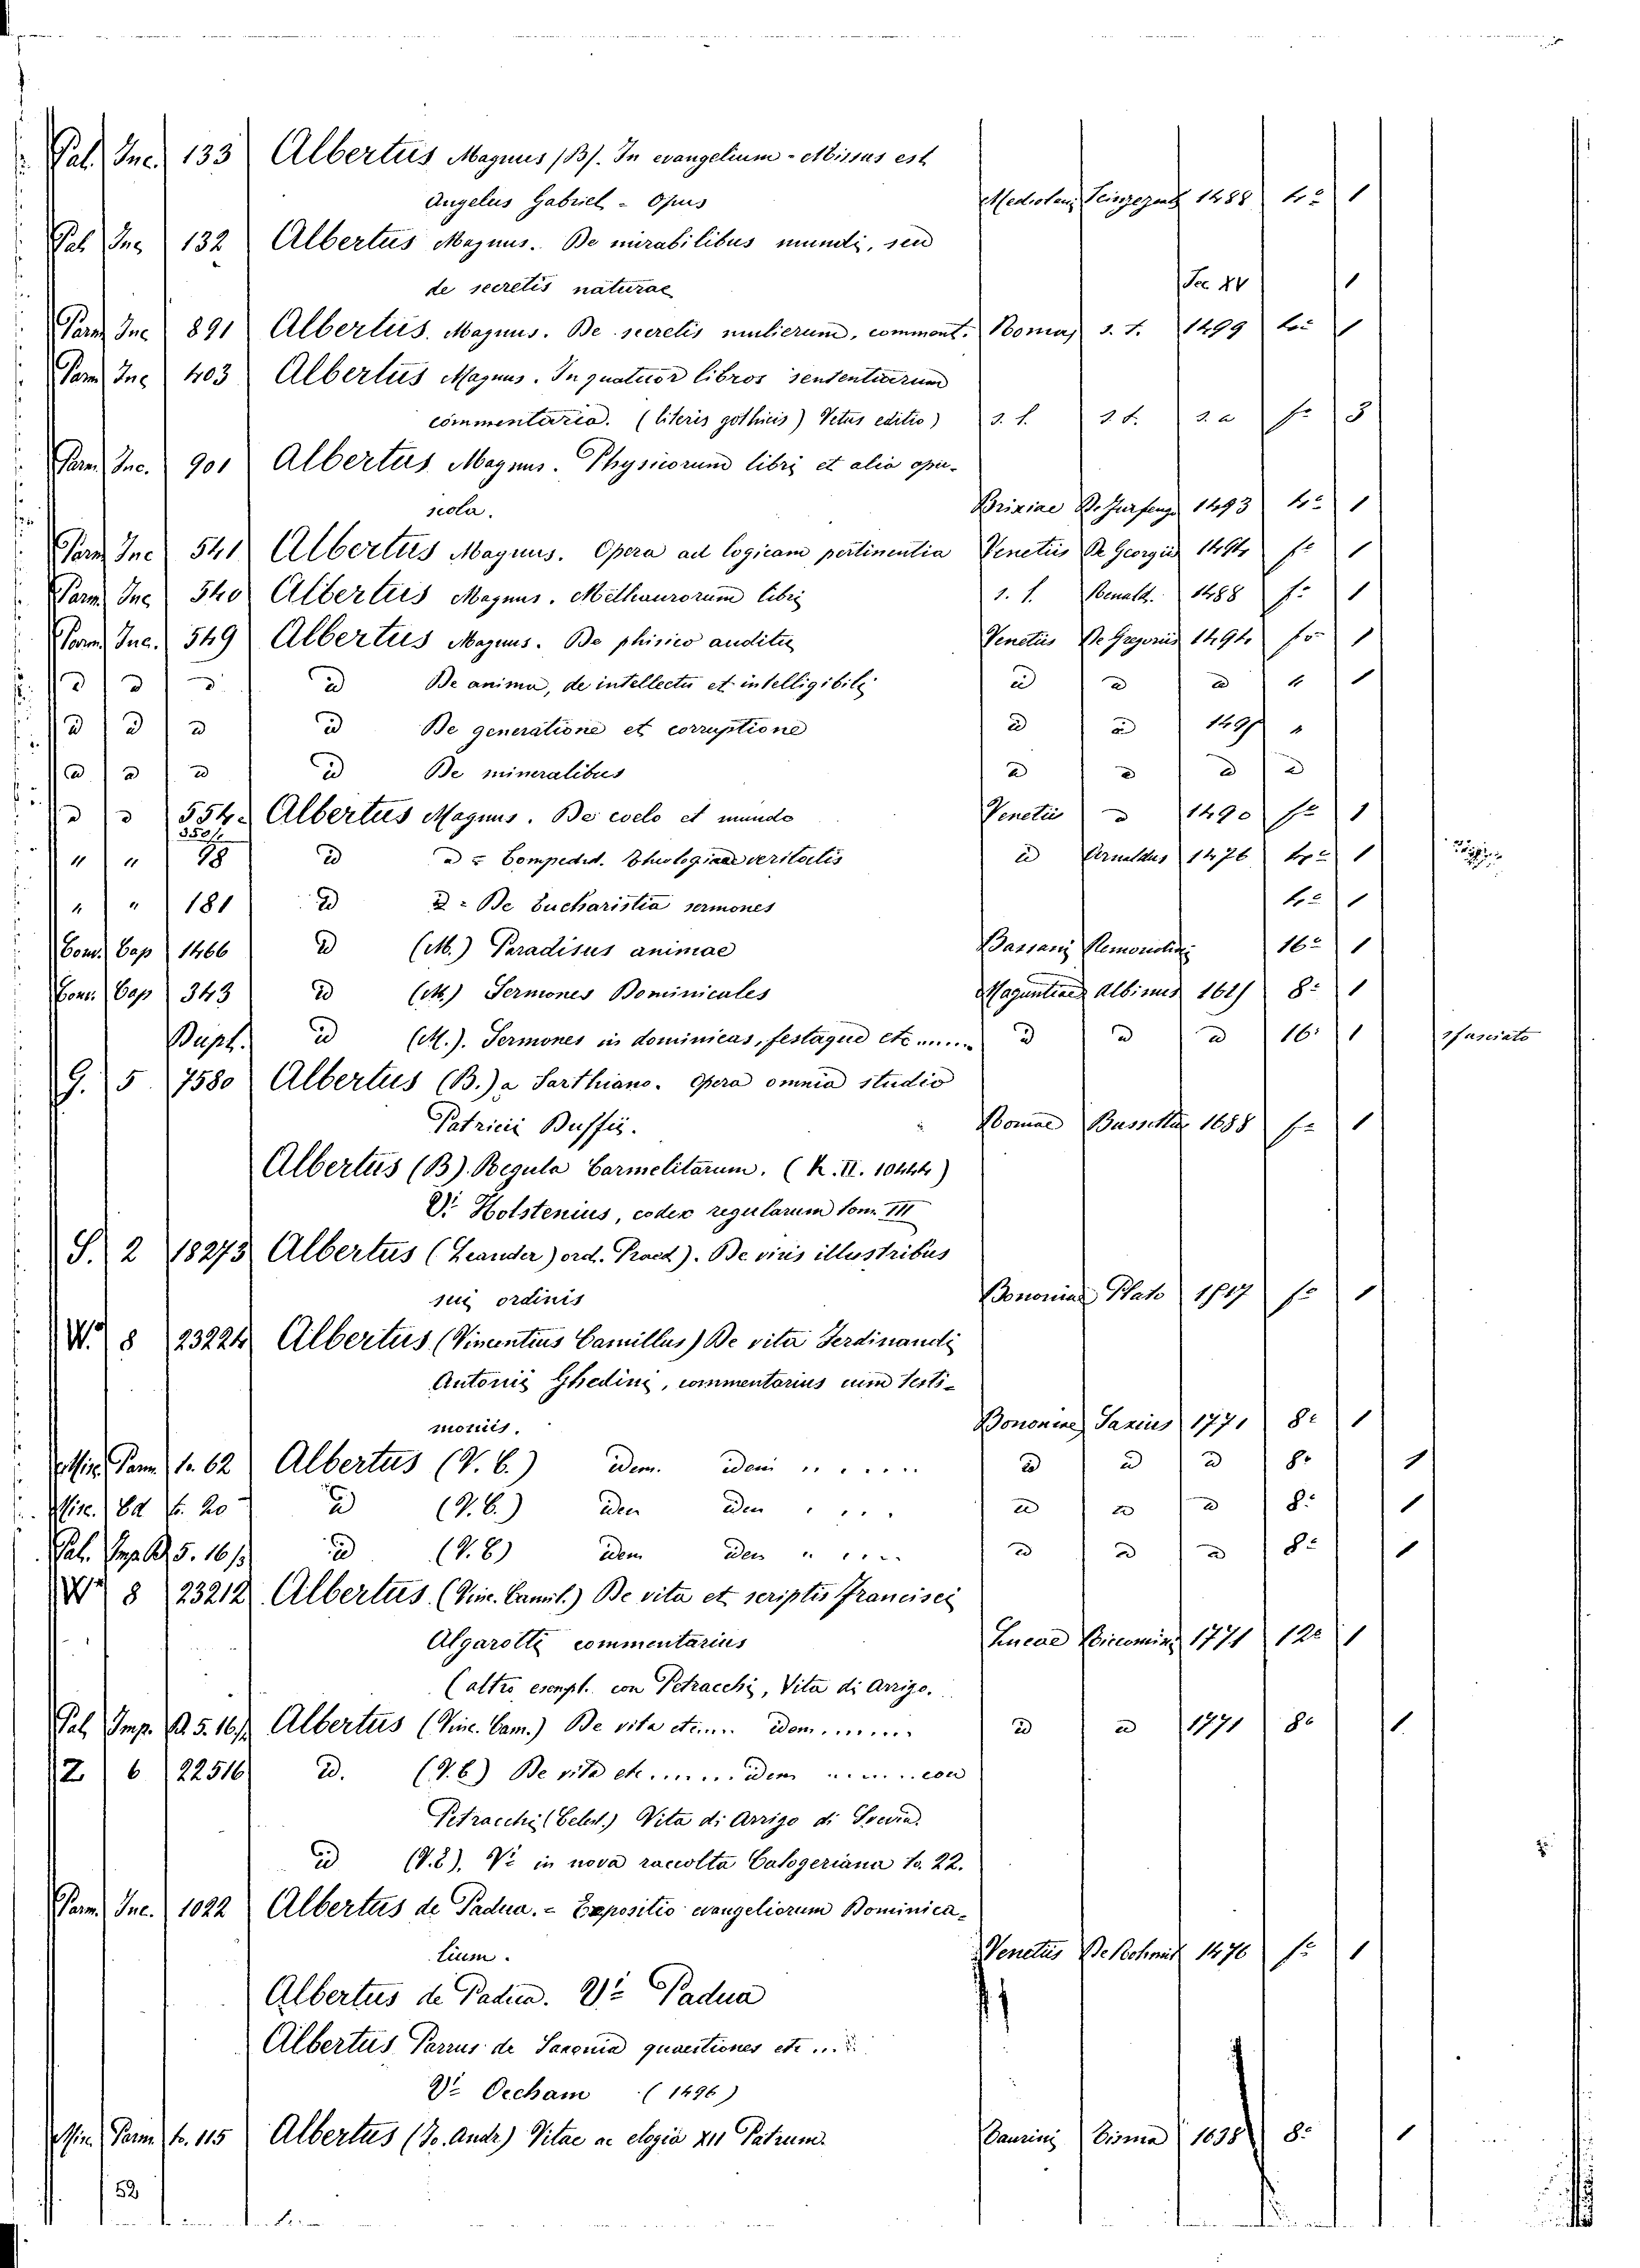 Pal. Inc. 133 Albertus Magnus (B). In evangelium - Missus est
Angelus Gabriel - Opus Mediolani Scinzegnch 1488 4º 1
Pal Inc 132 Albertus Magnus. De mirabilibus mundi, seu
de secretis naturae Sec XV 1
Parm Inc 891 Albertus Magnus. De secretis mulierum, comment. Romae s. t. 1499 4º 1
Parm Inc 403 Albertus Magnus. In quatuor libros sententiarum
commentaria. (literis gothicis) Vetus editio) s. l. s. t. s. a fº 3
Parm Inc. 901 Albertus Magnus. Physicorum libri et alia opu-
scola. Brixiae 1493 4º 1
Parm Inc 541 Albertus Magnus. Opera ad logicam pertinentia Venetiis De Gregoriis 1494 fº 1
Parm Inc 540 Albertus Magnus. Methaurorum libri s. l. Renald. 1488 fº 1
Parm Inc. 549 Albertus Magnus. De phisico auditu Venetiis De Gregoriis 1494 fº 1
id id id id De anima, de intellectu et intelligibili id id id " 1
id id id id De generatione et corruptione id id 1495 "
id id id id De mineralibus id id id id
id id 554 Albertus Magnus. De coelo et mundo Venetiis id 1490 fº 1
" " 98 id id = Compedit. Theologicae veritatis id 1476 4º 1
" " 181 id id = De Eucharistia sermones 4º 1
Conv. Cap 1466 id (M.) Paradisus animae Bassani Remondini 16º 1
Conv. Cap 343 id (M.) Sermones Dominicales Maguntiae Albinus 1615 8º 1
Dupl. id (M.). Sermones in dominicas, festaque etc ..... id id id 16º 1 sfasciato
G. 5 7580 Albertus (B.) a Sarthiano. Opera omnia studio
Patricii Duffii. Romae Bussottus 1688 fº 1
Albertus (B). Regula Carmelitarum. (K. II. 10444)
Vi Holstenius, codex regularum tom. III
S. 2 18273 Albertus (Leander) ord. Praed). De viris illustribus
sui ordinis Bononiae Plato 1517 fº 1
W. 8 23224 Albertus (Vincentius Camillus) De vita Ferdinandi
Antonii Ghedini, commentarius cum testi-
moniis. Bononiae Saxius 1771 8º 1
Misc. Parm. to. 62 Albertus (V. C.) idem. idem ...... id id id 8º 1
Misc. Ed to. 20 id (V. C.) idem idem .... id id id 8º 1
Pal. Imp. D. 5. 16/3 id (V. C) idem idem ..... id id id 8º 1
W 8 23212 Albertus (Vinc. Camil.) De vita et scriptis Francisci
Algarotti commentarius Lucae 1771 12º 1
(altro esempl. con Petracchi, Vita di Arrigo.
Pal Imp. D. 5. 16/2 Albertus (Vinc. Cam.) De vita etc..... idem ....... id id 1771 8º 1
Z 6 22516 id. (V. C) De vita etc....... idem ....... con
Petracchi (Celest.) Vita di Arrigo di Svevia.
id (V. C). Vi in nova raccolta Calogeriana to. 22.
Parm. Inc. 1022 Albertus de Padua. = Expositio evangeliorum Dominica-
lium. Venetiis 1476 fº 1
Albertus de Padua. Vi Padua
Albertus Parvus de Saxonia quaestiones etc ...
Vi Occham (1496)
Misc. Parm to. 115 Albertus (Jo. Andr.) Vitae ac elogia XII Patrum. Taurini Cisma 1638 8º 1
52